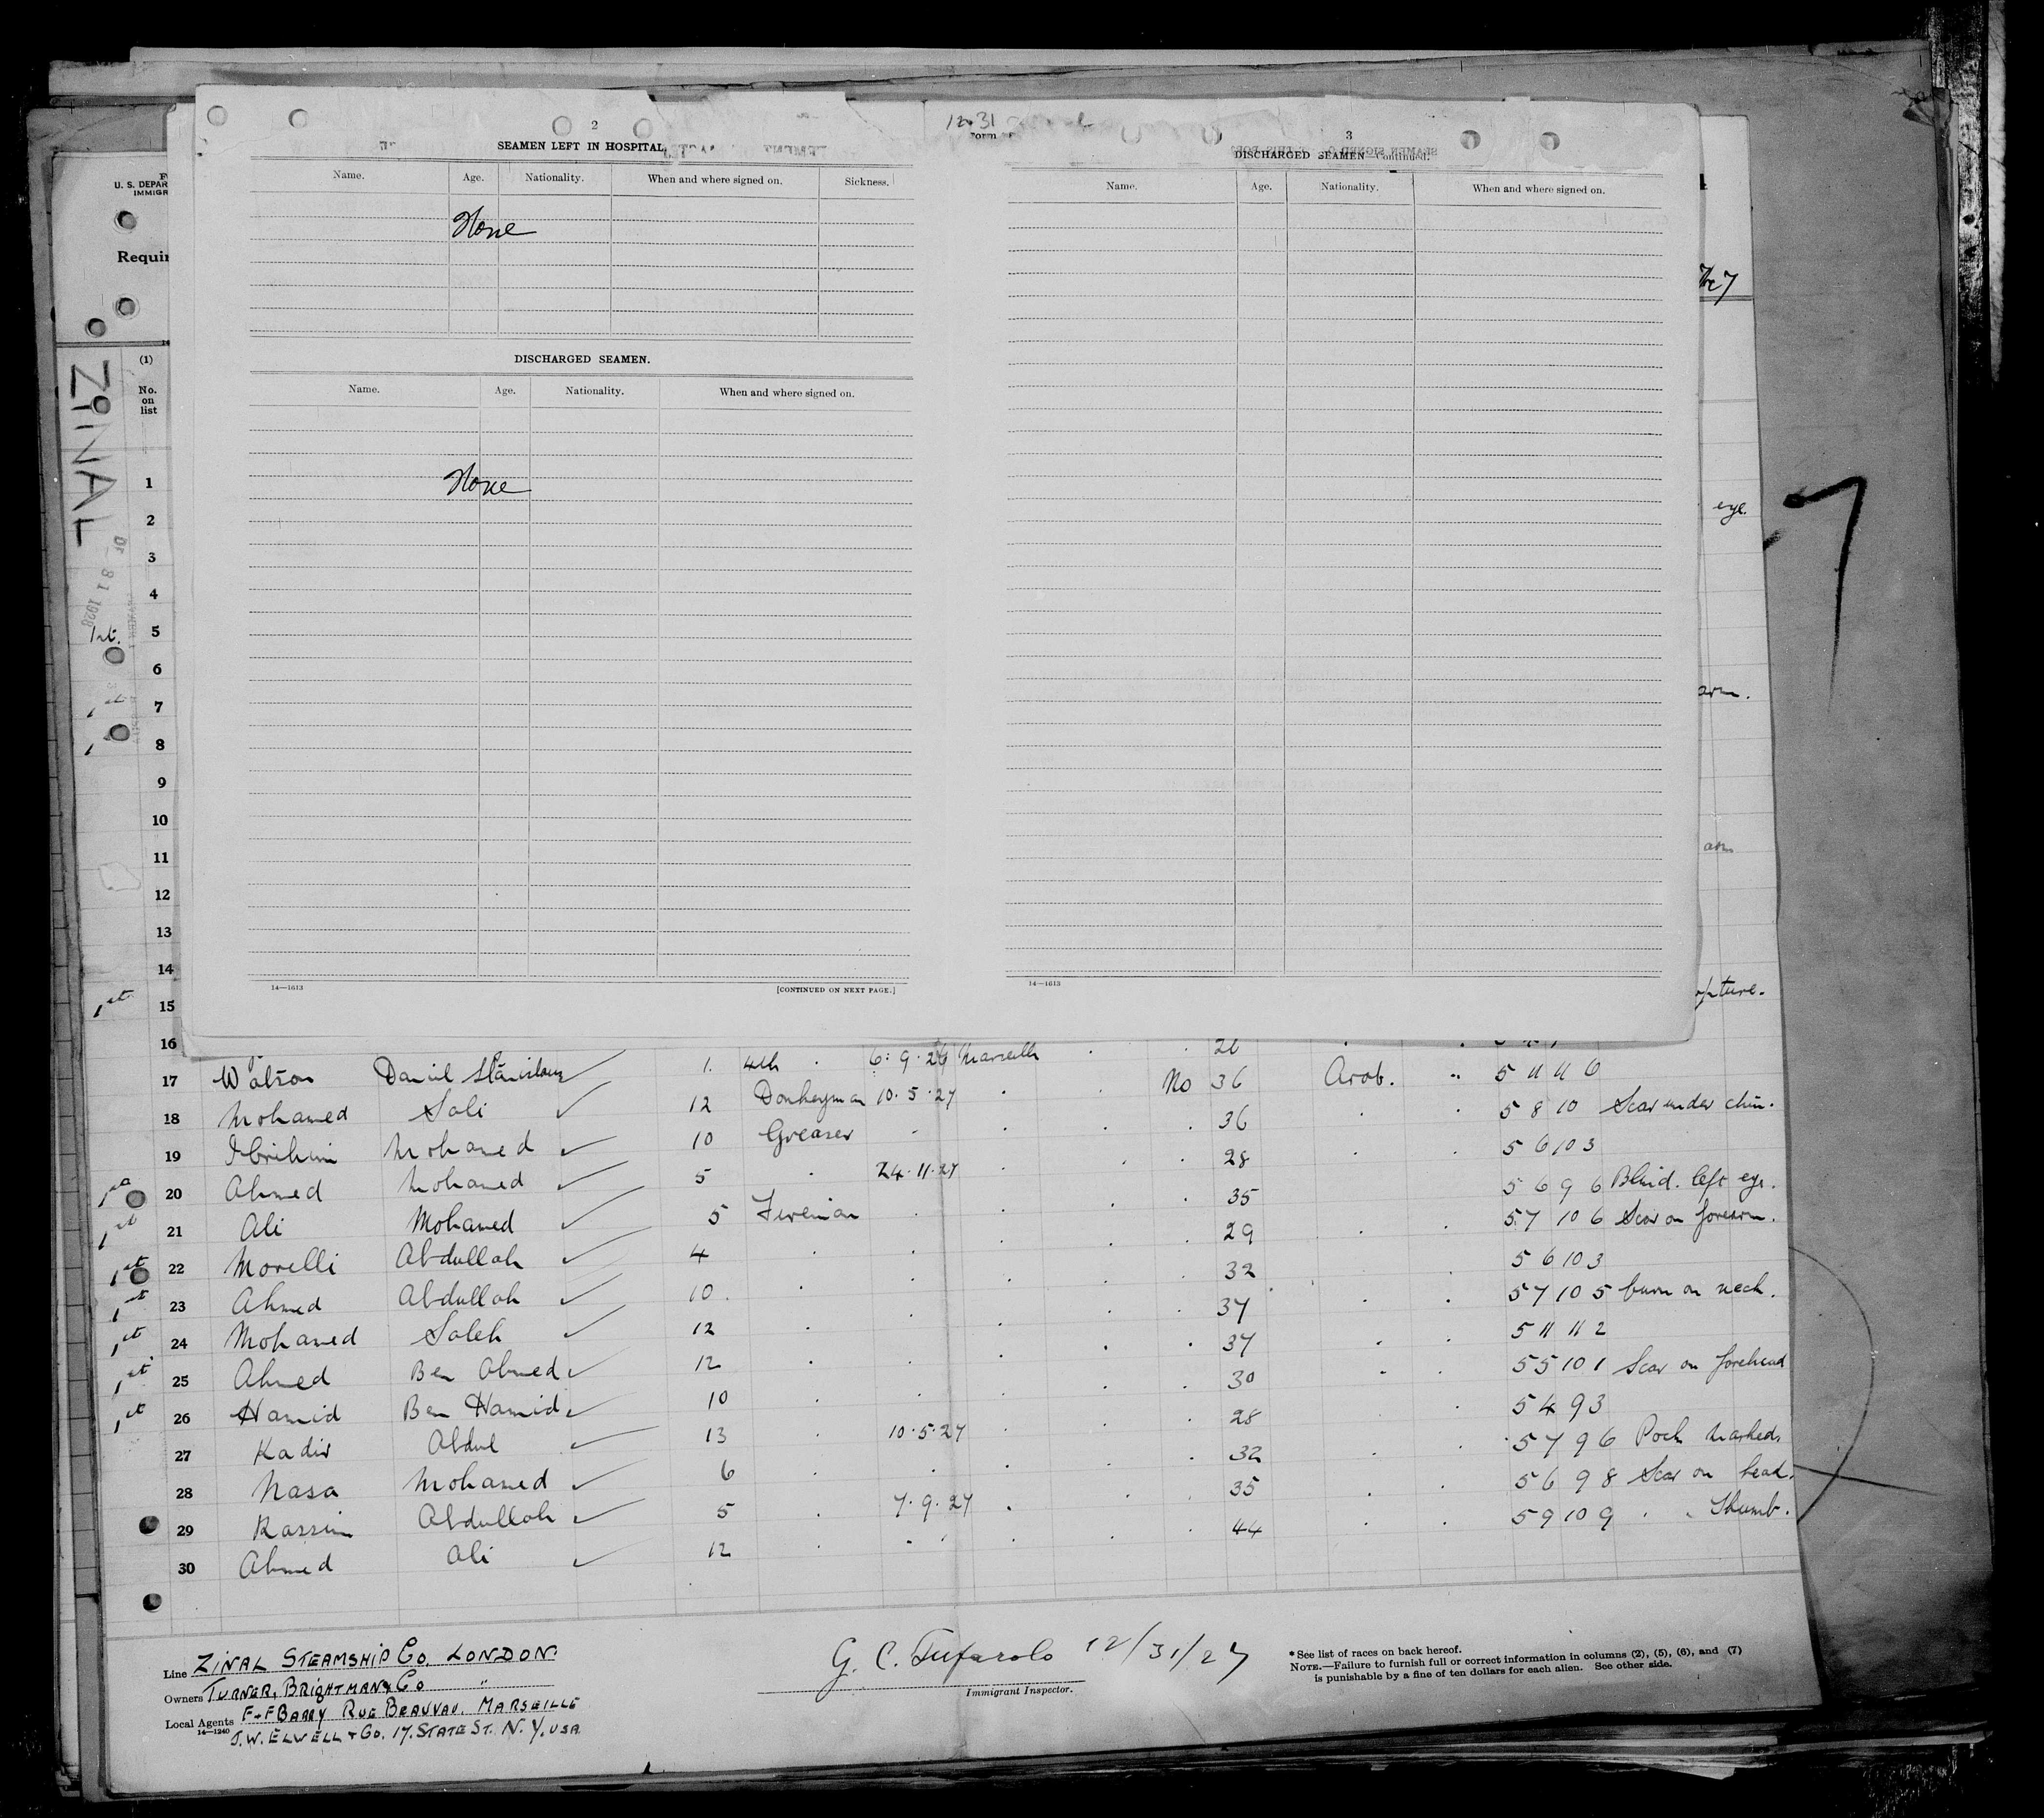 12.31
2
SEAMEN LEFT IN HOSPITAL
Name. Age. Nationality. When and where signed on. Sickness.
None
DISCHARGED SEAMEN.
Name. Age. Nationality. When and where signed on.
None
14—1613 [CONTINUED ON NEXT PAGE.]
3
DISCHARGED SEAMEN—Continued.
Name. Age. Nationality. When and where signed on.
14—1613
U. S. DEPAR
IMMIGR
Requir
ZINAL
(1)
No.
on
list
1
2 eye.
3
4
5
6
7 arm.
8
9
10
11 arm
12
13
14
15
16
17 Watson Daniel Stanislaus 1. 4th 6.9.26 Marseille 26
18 Mohamed Sali 12 Donkeyman 10.5.27 No 36 Arab. 5 11 11 6
19 Ibrihim Mohamed 10 Greaser 36 5 8 10 Scar under chin.
20 Ahmed Mohamed 5 24.11.27 28 5 6 10 3
21 Ali Mohamed 5 Fireman 35 5 6 9 6 Blind. left eye.
22 Morelli Abdullah 4 29 5 7 10 6 Scar on forearm.
23 Ahmed Abdullah 10 32 5 6 10 3
24 Mohamed Saleh 12 37 5 7 10 5 burn on neck.
25 Ahmed Ben Ahmed 12 37 5 11 11 2
26 Hamid Ben Hamid 10 30 5 5 10 1 Scar on forehead
27 Kadir Abdul 13 10.5.27 28 5 4 9 3
28 Nasa Mohamed 6 32 5 7 9 6 Pock marked
29 Kassim Abdullah 5 7.9.27 35 5 6 9 8 Scar on head.
30 Ahmed Ali 12 44 5 9 10 9 Thumb.
Line ZINAL STEAMSHIP CO. LONDON.
Owners TURNER, BRIGHTMAN & CO "
Local Agents F+F BARRY RUE BEAUVAU. MARSEILLE
14—1240 J.W. ELWELL + CO. 17. STATE ST. N.Y. USA
G. C. Tufarolo 12/31/27
Immigrant Inspector.
* See list of races on back hereof.
NOTE.—Failure to furnish full or correct information in columns (2), (5), (6), and (7)
is punishable by a fine of ten dollars for each alien. See other side.